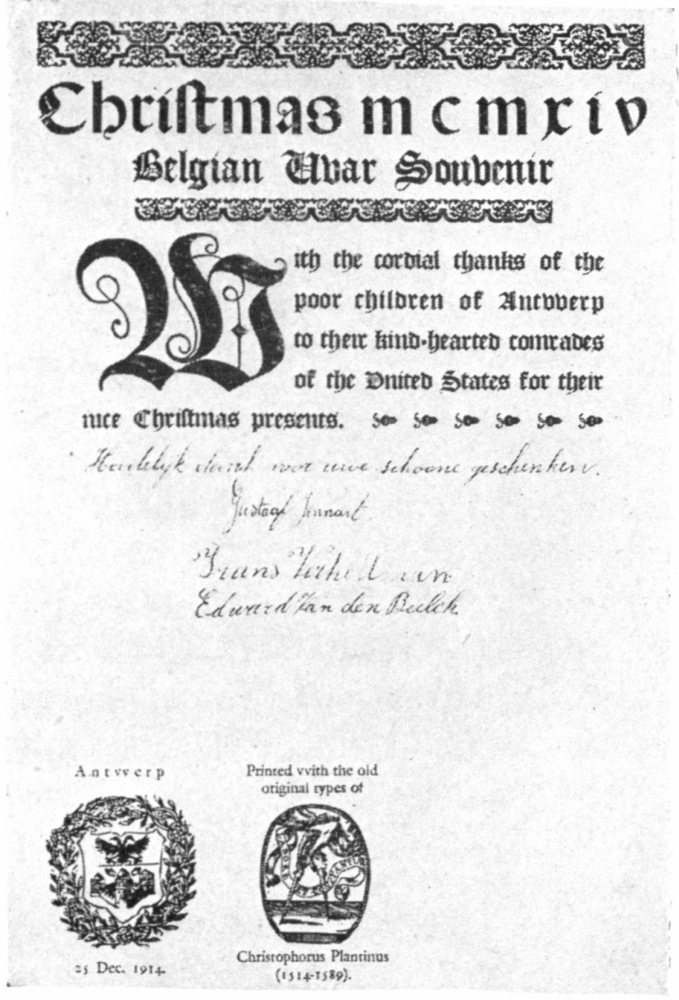 Christmas mcmxiv
Belgian VVar Souvenir
With the cordial thanks of the
poor children of Antvverp
to their kind-hearted comrades
of the Vnited States for their
nice Christmas presents.
Hartelyk dank voor uwe schoone geschenken.
Gustaaf Jennart
Frans
Edward Van den Bulck
Antvverp
25 Dec. 1914.
Printed vvith the old
original types of
Christophorus Plantinus
(1514-1589).